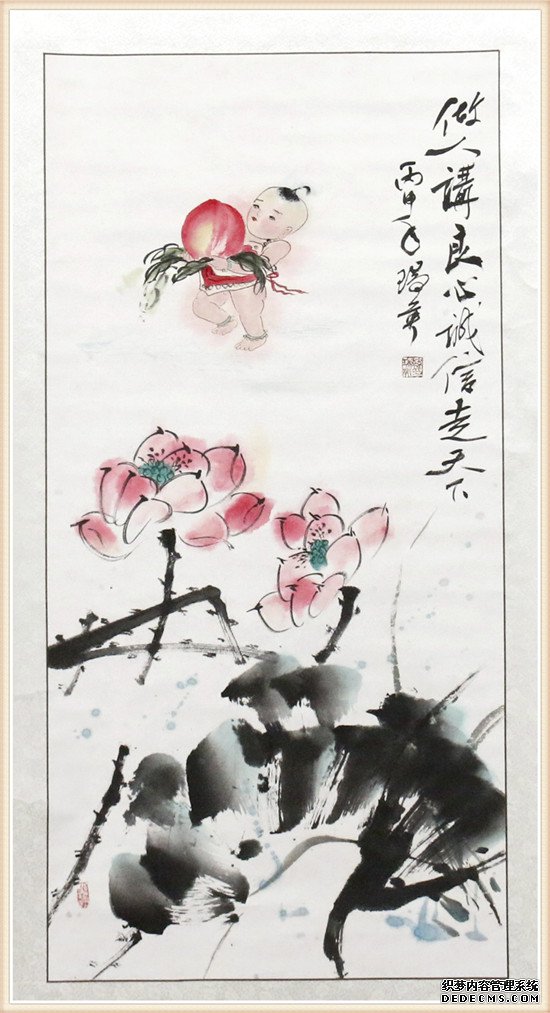 做人講良心誠信走天下
丙申年瑞華
织梦内容管理系统
DEDECMS.COM